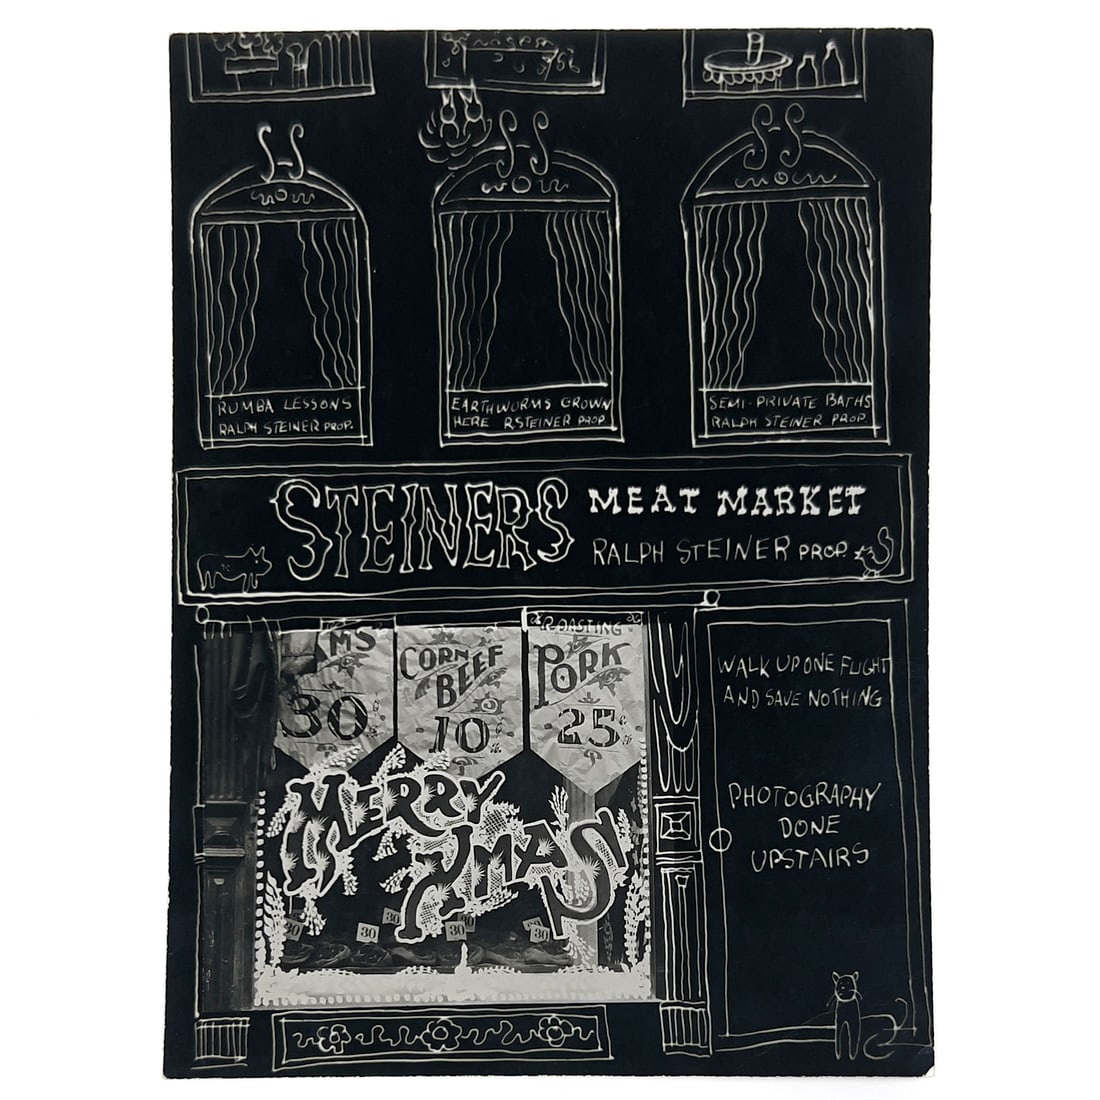 RUMBA LESSONS
RALPH STEINER PROP.
EARTHWORMS GROWN
HERE R.STEINER PROP.
SEMI-PRIVATE BATHS
RALPH STEINER PROP.
STEINERS MEAT MARKET
RALPH STEINER PROP.
CORN BEEF
10
ROASTING
PORK
25
30
MERRY
XMAS
30
30
30
30
30
WALK UP ONE FLIGHT
AND SAVE NOTHING
PHOTOGRAPHY
DONE
UPSTAIRS